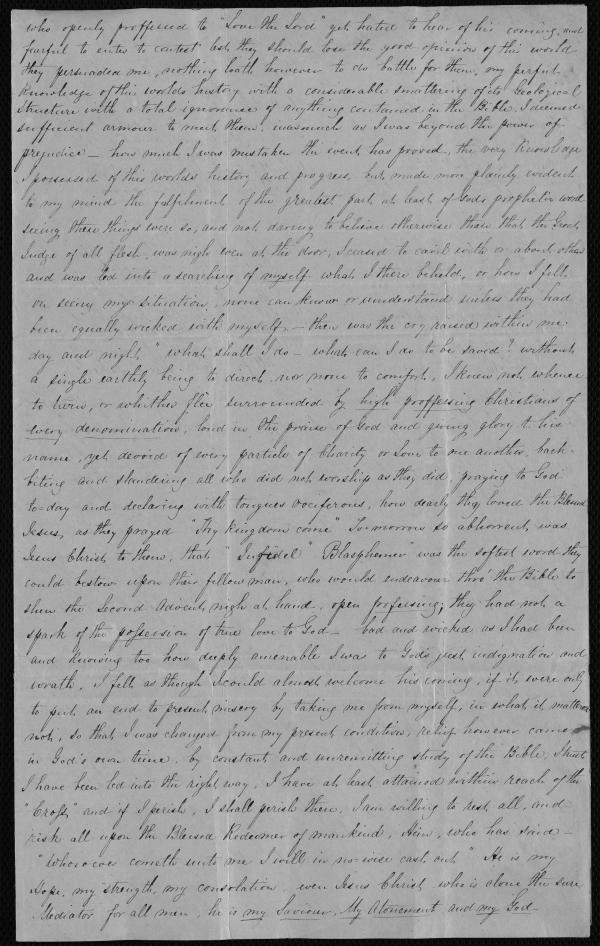 who openly proffessed to "Love the Lord" yet hated to hear of his coming, and
fearful to enter to contest lest they should lose the good opinion of this world
they persuaded me, nothing loath however to do battle for them, my perfect
knowledge of this worlds history with a considerable smattering of its Geological
Structure with a total ignorance of anything contained in the Bible, I deemed
sufficient armour to meet them, inasmuch as I was beyond the power of
prejudice – how much I was mistaken the event has proved, the very knowledge
I possessed of this worlds history and progress, but made more plainly evident
to my mind the fulfilment of the greatest part at least of Gods prophetic word
seeing these things were so, and not daring to believe otherwise than that the Great
Judge of all flesh, was nigh even at the door, I ceased to cavil with or about others
and was led into a searching of myself what I there beheld, or how I felt
on seeing my situation, none can know or understand unless they had
been equally wicked with myself, – then was the cry raised within me
day and night, "what shall I do – what can I do to be saved"? without
a single earthly being to direct, nor none to comfort, I knew not whence
to turn, or whither flee surrounded by high proffessing Christians of
every denomination, loud in the praise of God and giving glory to his
name, yet devoid of every particle of Charity or Love to one another, back-
biting and slandering all who did not worship as they did, praying to God
to-day and declaring with tongues vociferous, how dearly they loved the Blessed
Jesus, as they prayed "Thy Kingdom come" To-morrow so abhorrent, was
Jesus Christ to them, that "Infidel" "Blasphemer" was the softest word they
could bestow upon their fellow man, who would endeavour thro' the Bible to
shew the Second Advent, nigh at hand, open professing; they had not a
spark of the possession of true love to God – bad and wicked as I had been
and knowing too how deeply amenable I was to God's just indignation and
wrath, I felt as though I could almost welcome his coming, if it were only
to put an end to present misery by taking me from myself, in what it matters
not, so that I was changed from my present condition, relief however came
in God's own time, by constant and unremitting study of the Bible, I trust
I have been led into the right way, I have at least attained within reach of the
"Cross," and if I perish, I shall perish there, I am willing to rest all, and
risk all upon the Blessed Redeemer of mankind, Him, who has said –
"Whosoever cometh unto me I will in no-wise cast out" He is my
Hope, my strength, my consolation, even Jesus Christ, who is alone the sure
Mediator for all men, he is my Saviour, My Atonement and my God –